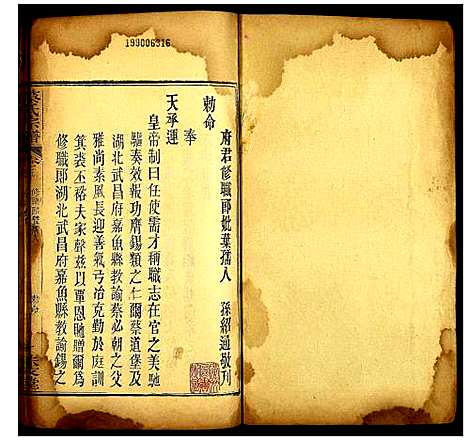 199006316
府君修職郎妣葉孺人 孫紹通敬刊
勅命
奉
天承運
皇帝制曰任使需才稱職志在官之美馳
驅奏效報功膺錫類之仁爾蔡道堡乃
湖北武昌府嘉魚縣教諭蔡必朝之父
雅尚素風長迎善氣弓冶克勤於庭訓
箕裘丕裕夫家聲茲以覃恩馳贈爾為
修職郎湖北武昌府嘉魚縣教諭錫之